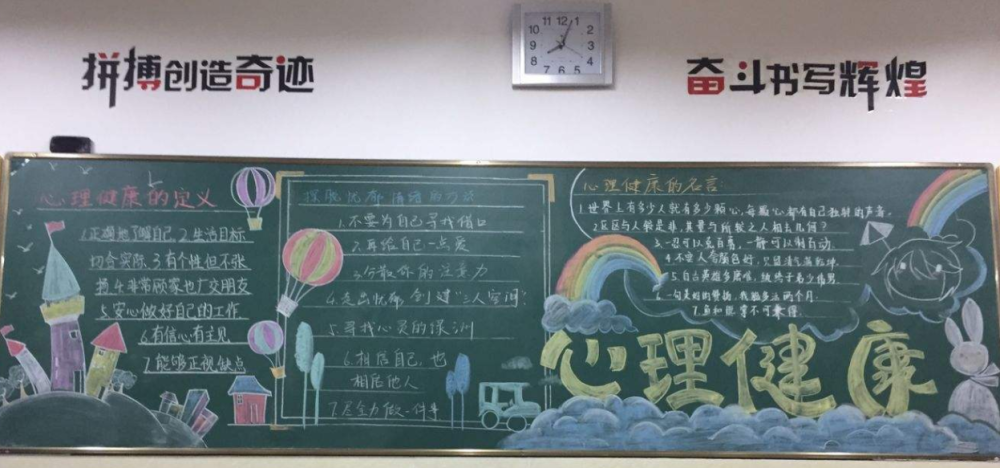 拼搏创造奇迹
11 12 1
10 2
9 3
8 4
7 6 5
奋斗书写辉煌
心理健康的定义
1.正确地了解自己 2.生活目标
切合实际 3.有个性但不张
扬 4.非常顾家也广交朋友
5.安心做好自己的工作
6.有信心有主见
7.能够正视缺点
摆脱忧郁情绪的方法
1.不要为自己寻找借口
2.再给自己一点爱
3.分散你的注意力
4.走出忧郁创建"三人空间"
5.寻找心灵的
6.相信自己,也
相信他人
7.尽全力做一件事
心理健康的名言
1.世界上有多少人就有多少颗心,每颗心都有自己独特的声音.
2.区区与人较是非,其量与所较之人相去几何?
3.一忍可以支百勇,一静可以制百动.
4.不要人夸颜色好,只留清气满乾坤.
5.自古英雄多磨难,
6.一句美好的赞扬,我能多活两个月.
7.
心理健康